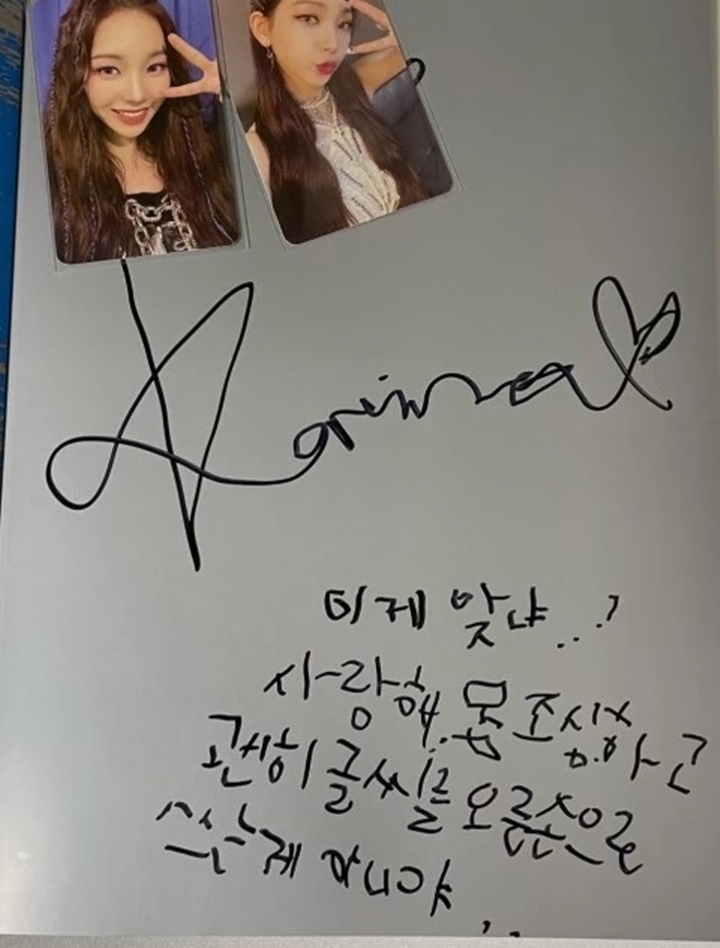 Karina
이게 맞냐..?
사랑해.. 몸 조심하고
괜히 글씨를 오른손으로
쓰는게 아니야..